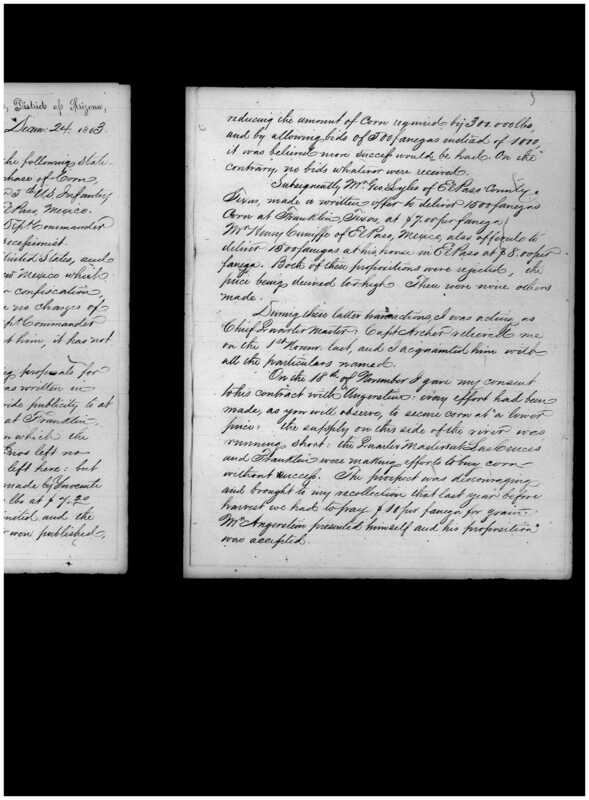 District of Arizona,
Decem. 24, 1863.
he following state
chase of Corn,
5th U.S. Infantry
El Paso, Mexico.
Dept Commander
United States, and
Mexico which
confiscation,
no charges of
Commander
him, it has not
proposals for
as written in
wide publicity to at
at Franklin,
in which the
left no
left here: but
made by
lbs at $7.20
and the
were published,
reducing the amount of Corn required by 300.000 lbs
and by allowing bids of 500 fanegas instead of 1000,
it was believed more success would be had. On the
contrary no bids whatever were received.
Subsequently Mr Geo Lyles of El Paso County,
Texas, made a written offer to deliver 1500 fanegas
Corn at Franklin, Texas, at $7.00 per fanega;
Mr Henry Cuniffe of El Paso, Mexico, also offered to
deliver 1500 fanegas at his house in El Paso at $8.00 per
fanega. Both of these propositions were rejected, the
price being deemed too high. There were none others
made.
During these latter transactions, I was acting as
Chief Quarter Master: Capt Archer relieved me
on the 1st Novemr. last, and I acquainted him with
all the particulars named.
On the 18th of November I gave my consent
to his contract with Angerstein: every effort had been
made, as you will observe, to secure corn at a lower
price: the supply on this side of the river was
running short: the Quarter Masters at Las Cruces
and Franklin were making efforts to buy corn
without success. The prospect was discouraging
and brought to my recollection that last year before
harvest we had to pay $10 per fanega for grain.
Mr Angerstein presented himself and his proposition
was accepted.